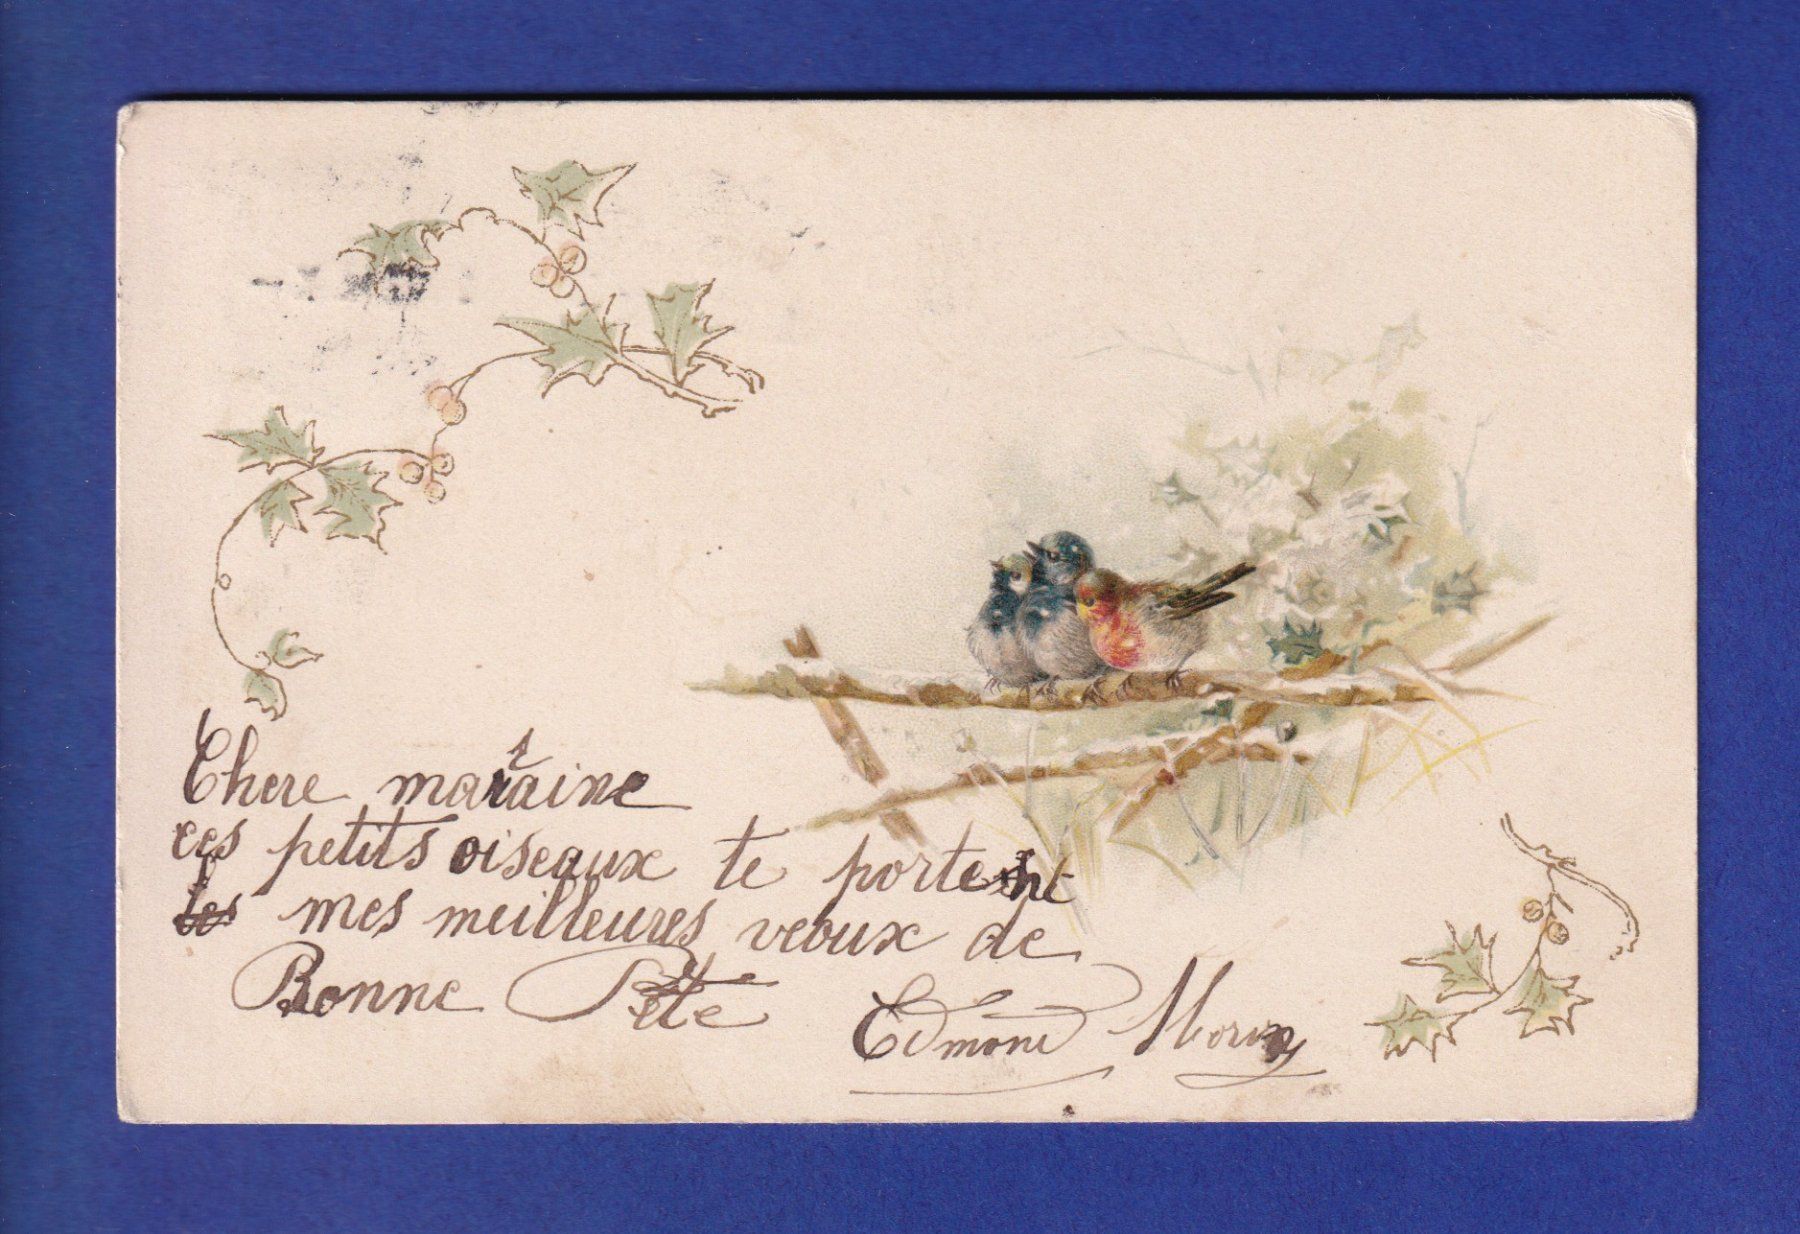 Chere marraine
ces petits oiseaux te portent
les mes meilleures veoux de
Bonne Fête Edmond Morin